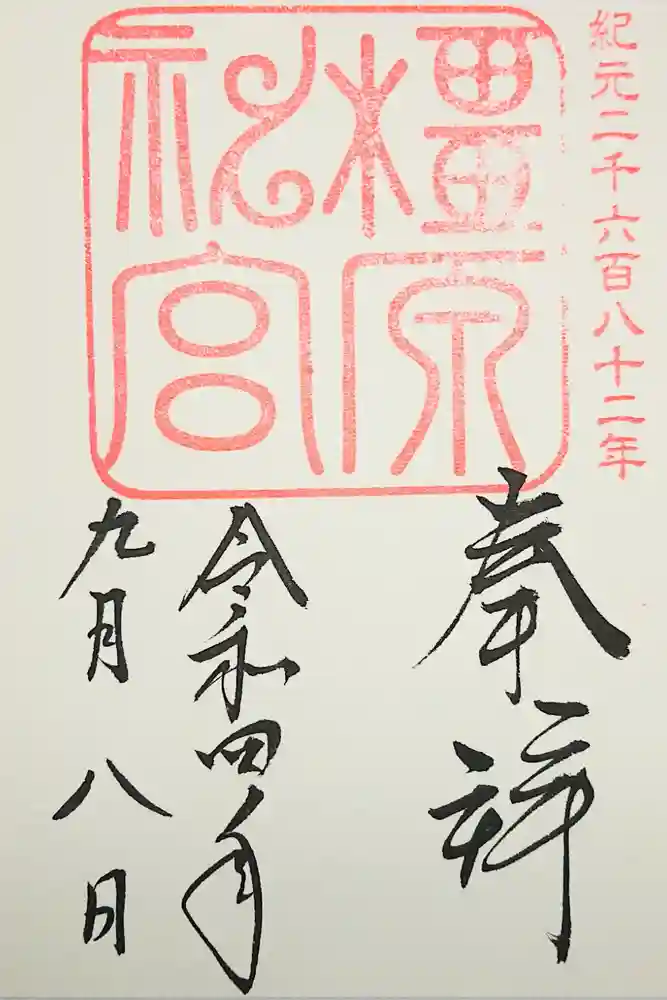 紀元二千六百八十二年
橿原
神宮
奉拝
令和四年
九月八日